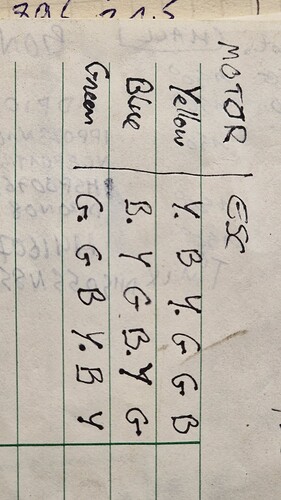 MOTOR ESC
Yellow Y. B Y. G G B
Blue B. Y G B. Y G
Green G. G B Y. B Y